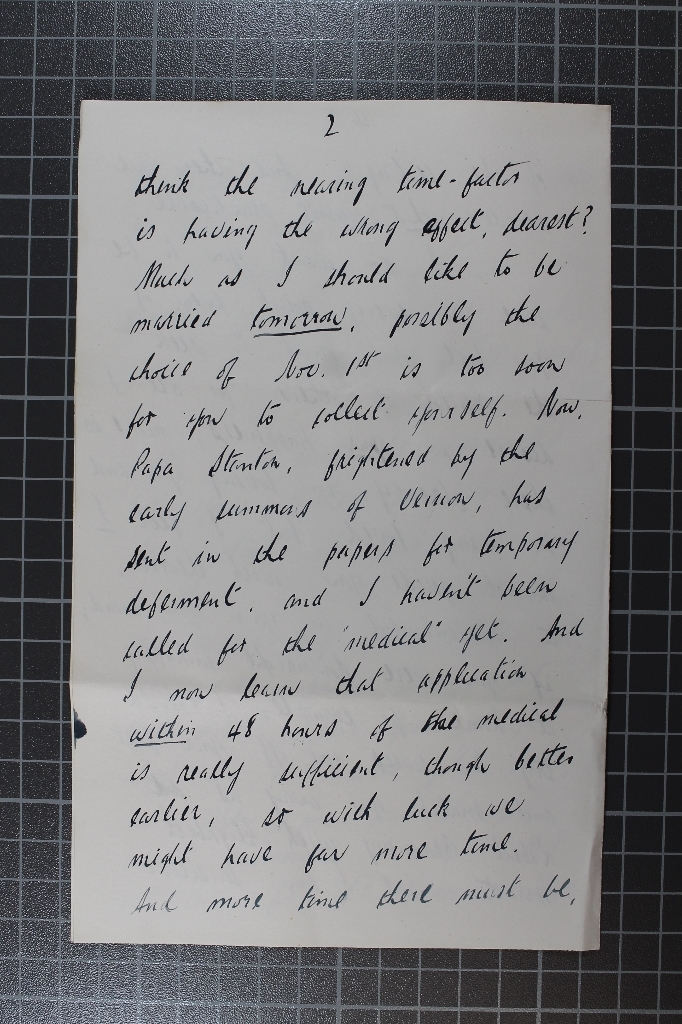 2
think the nearing time-factor
is having the wrong effect, dearest?
Much as I should like to be
married tomorrow, possibly the
choice of Nov. 1st is too soon
for you to collect yourself. Now,
Papa Stanton, frightened by the
early summons of Vernon, has
sent in the papers for temporary
deferment, and I haven't been
called for the "medical" yet. And
I now learn that application
within 48 hours of the medical
is really sufficient, though better
earlier, so with luck we
might have far more time.
And more time there must be,